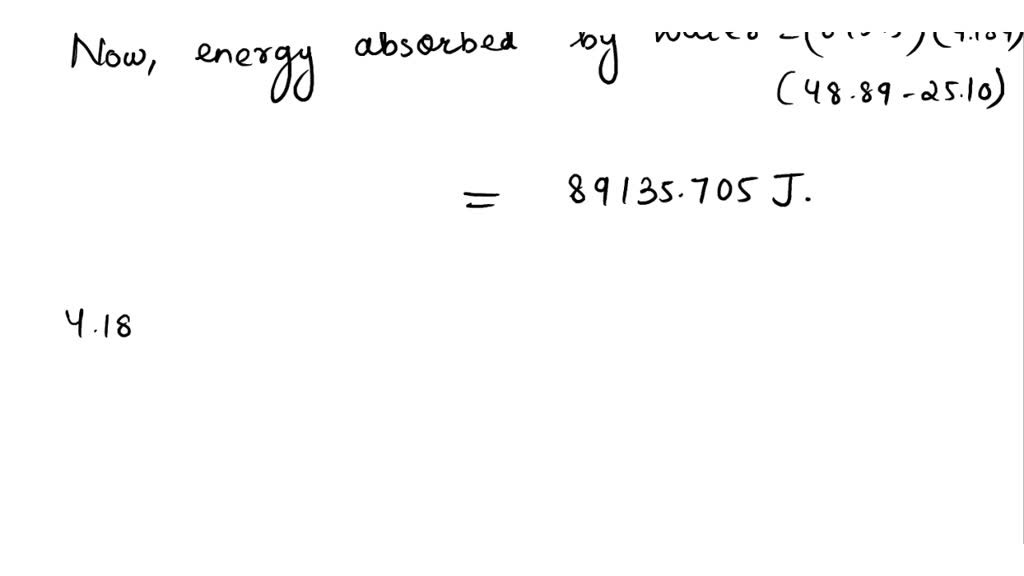 Now, energy absorbed by
(48.89-25.10)
= 89135.705 J.
4.18